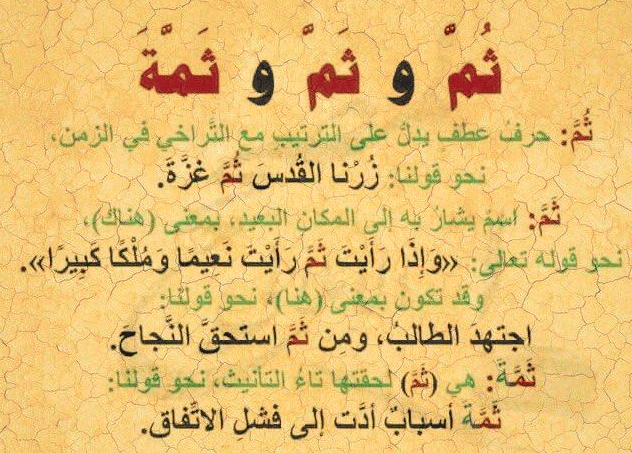 ثُمَّ و ثَمَّ و ثَمَّةَ
ثُمَّ: حرفُ عطفٍ يدلُّ على الترتيبِ معَ التَّراخي في الزمن،
نحو قولنا: زُرْنا القُدسَ ثُمَّ غزَّةَ.
ثَمَّ: اسمٌ يشارُ به إلى المكان البعيد، بمعنى (هناك)،
نحو قوله تعالى: «وَإِذَا رَأَيْتَ ثَمَّ رَأَيْتَ نَعِيمًا وَمُلْكًا كَبِيرًا».
وقد تكون بمعنى (هنا)، نحو قولنا:
اجتهدَ الطالبُ، ومِن ثَمَّ استحقَّ النَّجاحَ.
ثَمَّةَ: هي (ثَمَّ) لحقتها تاءُ التأنيث، نحو قولنا:
ثَمَّةَ أسبابٌ أدَّت إلى فشلِ الاتِّفاق.